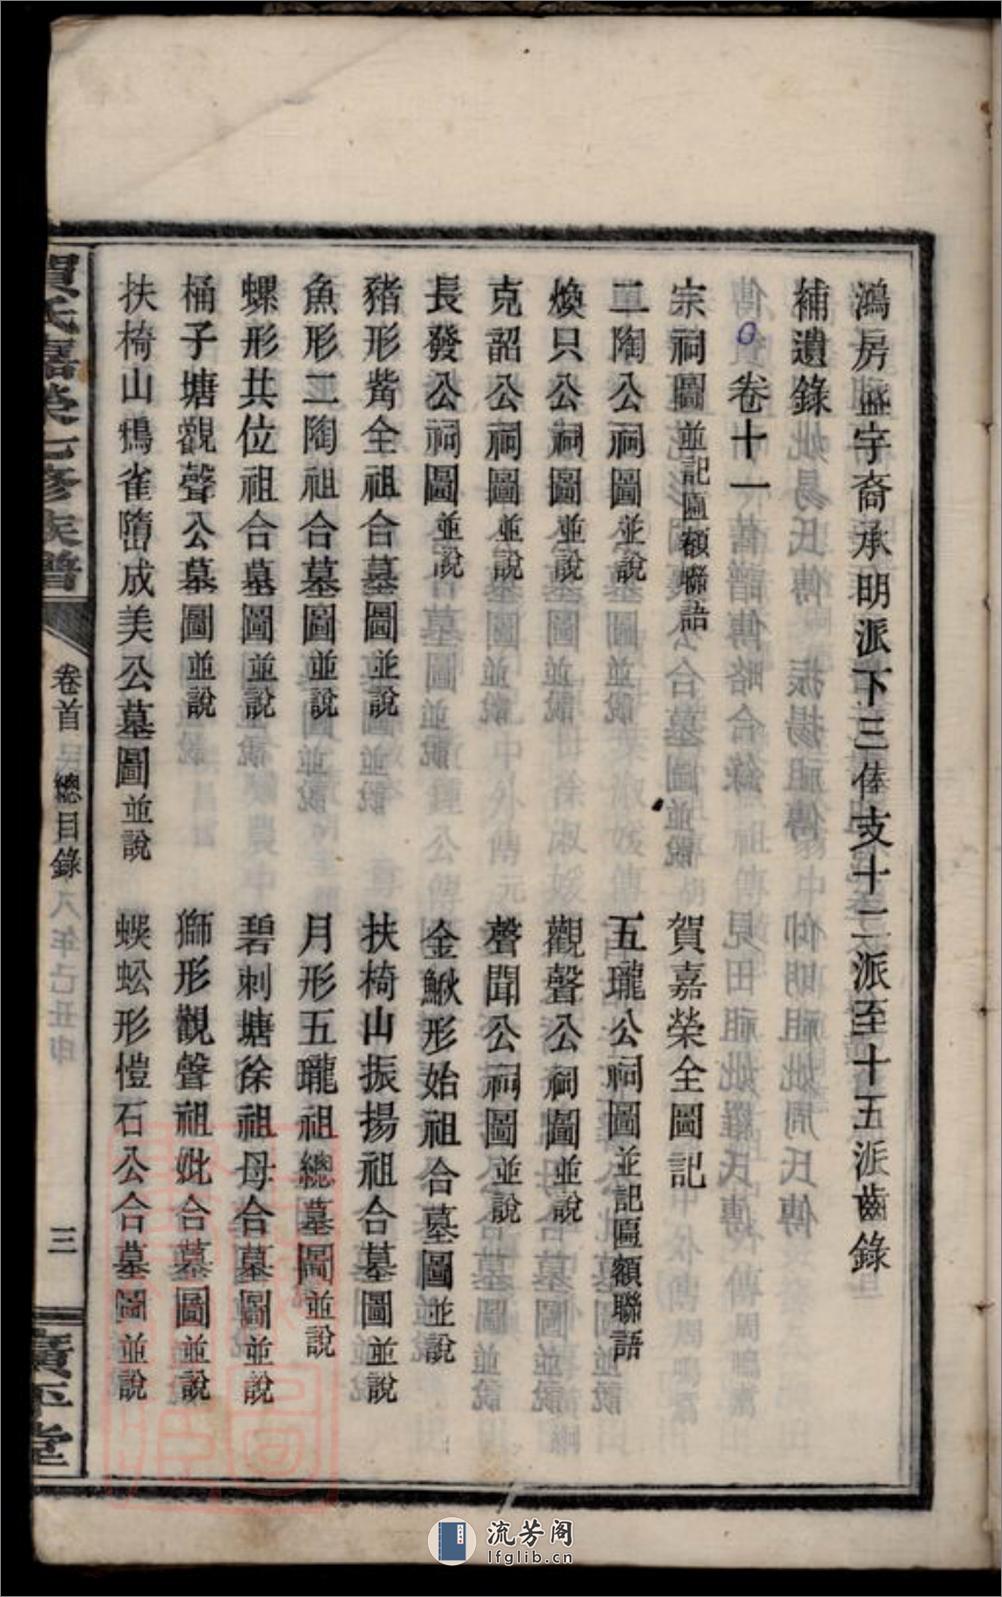 鴻房盛字裔承明派下三俸支十二派至十五派齒錄
補遺錄
卷十一
宗祠圖並記匾額聯語　賀嘉榮全圖記
二陶公祠圖並說　五瓏公祠圖並記匾額聯語
煥只公祠圖並說　觀聲公祠圖並說
克韶公祠圖並說　聲聞公祠圖並說
長發公祠圖並說　金鰍形始祖合墓圖並說
豬形觜全祖合墓圖並說　扶椅山振揚祖合墓圖並說
魚形二陶祖合墓圖並說　月形五瓏祖總墓圖並說
螺形共位祖合墓圖並說　碧刺塘徐祖母合墓圖並說
桶子塘觀聲公墓圖並說　獅形觀聲祖妣合墓圖並說
扶椅山鴉雀墮成美公墓圖並說　蜈蚣形愷石公合墓圖並說
賀氏嘉榮七修族譜
卷首　總目錄
三
廣平堂
流芳阁
lfglib.cn